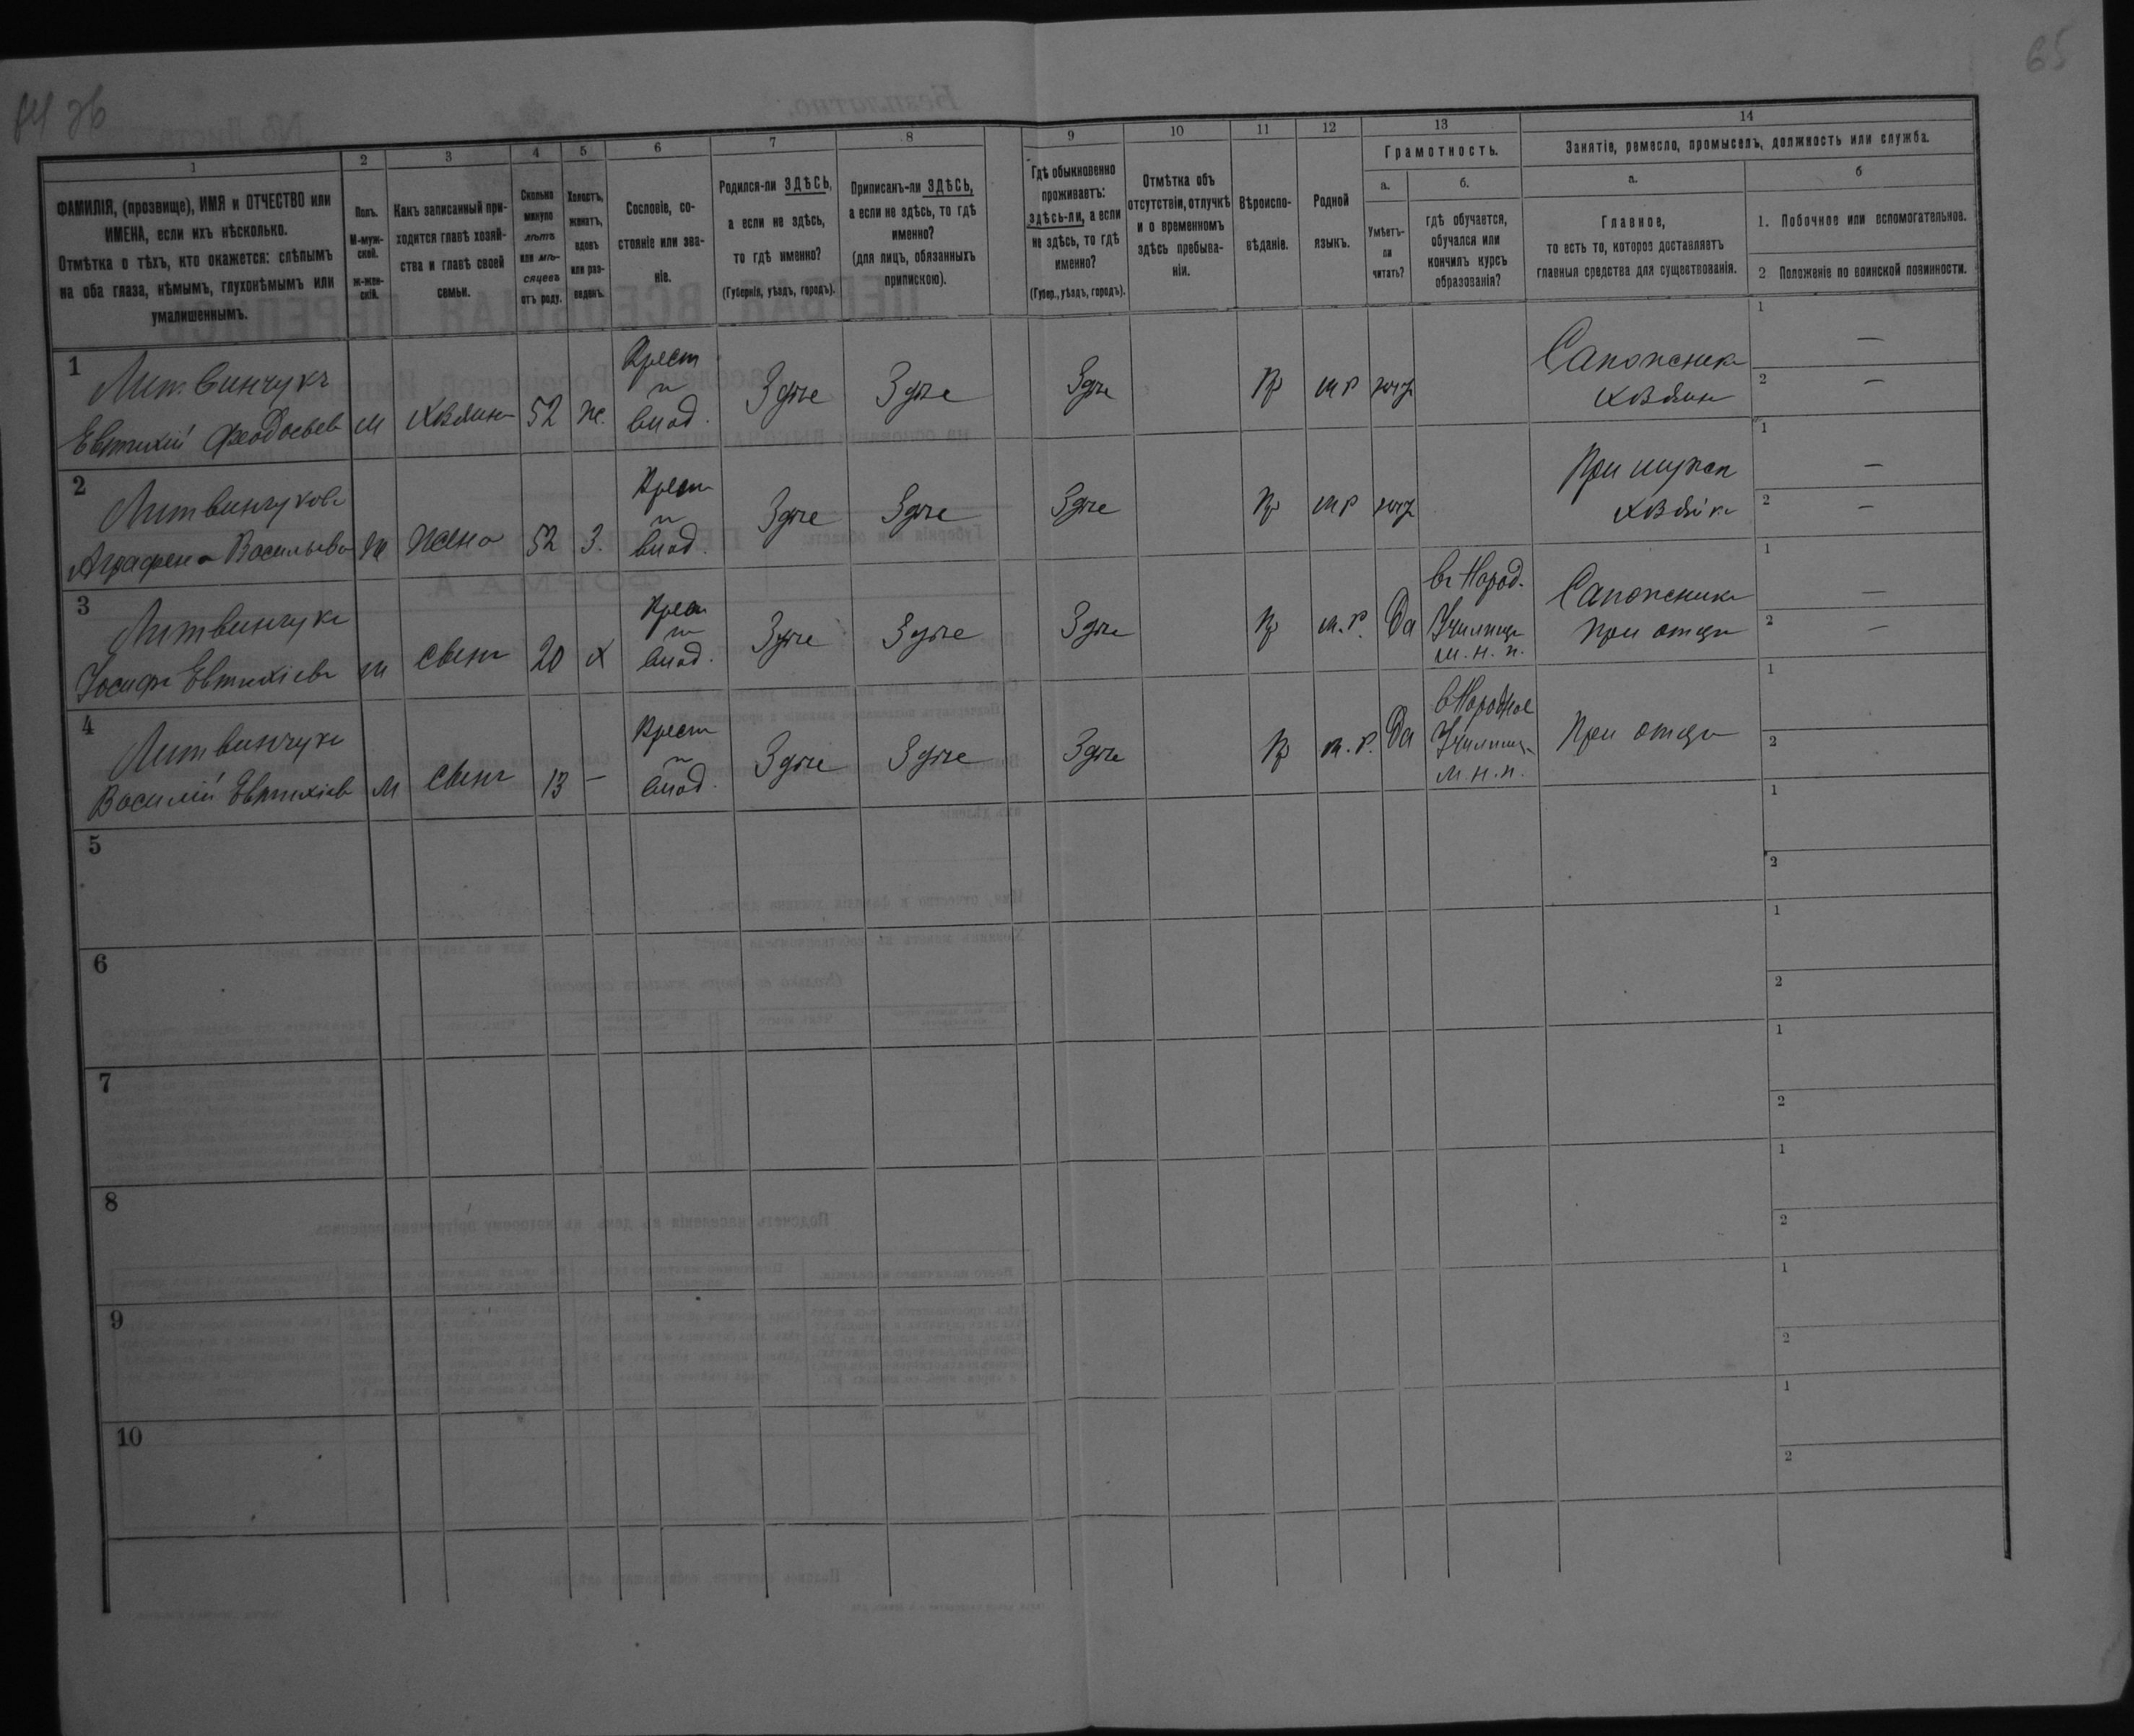 65
1
2
3
4
5
6
7
8
9
10
11
12
13
14
ФАМИЛІЯ, (прозвище), ИМЯ и ОТЧЕСТВО или
ИМЕНА, если ихъ нѣсколько.
Отмѣтка о тѣхъ, кто окажется: слѣпымъ
на оба глаза, нѣмымъ, глухонѣмымъ или
умалишеннымъ.
Полъ.
М-муж-
ской.
ж-жен-
скій.
Какъ записанный при-
ходится главѣ хозяй-
ства и главѣ своей
семьи.
Сколько
минуло
лѣтъ
или мѣ-
сяцевъ
отъ роду.
Холостъ,
женатъ,
вдовъ
или раз-
веденъ.
Сословіе, со-
стояніе или зва-
ніе.
Родился-ли ЗДѢСЬ,
а если не здѣсь,
то гдѣ именно?
(Губернія, уѣздъ, городъ).
Приписанъ-ли ЗДѢСЬ,
а если не здѣсь, то гдѣ
именно?
(для лицъ, обязанныхъ
припискою).
Гдѣ обыкновенно
проживаетъ:
здѣсь-ли, а если
не здѣсь, то гдѣ
именно?
(Губер., уѣздъ, городъ).
Отмѣтка объ
отсутствіи, отлучкѣ
и о временномъ
здѣсь пребыва-
ніи.
Вѣроиспо-
вѣданіе.
Родной
языкъ.
Грамотность.
а.
Умѣетъ-
ли
читать?
б.
гдѣ обучается,
обучался или
кончилъ курсъ
образованія?
Занятіе, ремесло, промыселъ, должность или служба.
а.
Главное,
то есть то, которое доставляетъ
главныя средства для существованія.
б
1. Побочное или вспомогательное.
2 Положеніе по воинской повинности.
1
Литвинчукъ
Евтихій Феодосьевъ
м
хозяинъ
52
ж.
Крест
и
влад.
Здѣсь
Здѣсь
Здѣсь
Пр
м р
Сапожникъ
хозяинъ
1 —
2 —
2
Литвинчукова
Аграфена Васильева
ж
жена
52
З.
Крест
и
влад.
Здѣсь
Здѣсь
Здѣсь
Пр
м р
При мужѣ
хозяйка
1 —
2 —
3
Литвинчукъ
Іосифъ Евтихіевъ
м
сынъ
20
х
Крест
и
влад.
Здѣсь
Здѣсь
Здѣсь
Пр
м. р.
Да
въ Народ.
Училищѣ
м. н. п.
Сапожникъ
при отцѣ
1 —
2 —
4
Литвинчукъ
Василій Евтихіевъ
м
сынъ
13
—
Крест
и
влад.
Здѣсь
Здѣсь
Здѣсь
Пр
м. р.
Да
въ Народное
Училищѣ
м. н. п.
При отцѣ
1
2
5
1
2
6
1
2
7
1
2
8
1
2
9
1
2
10
1
2